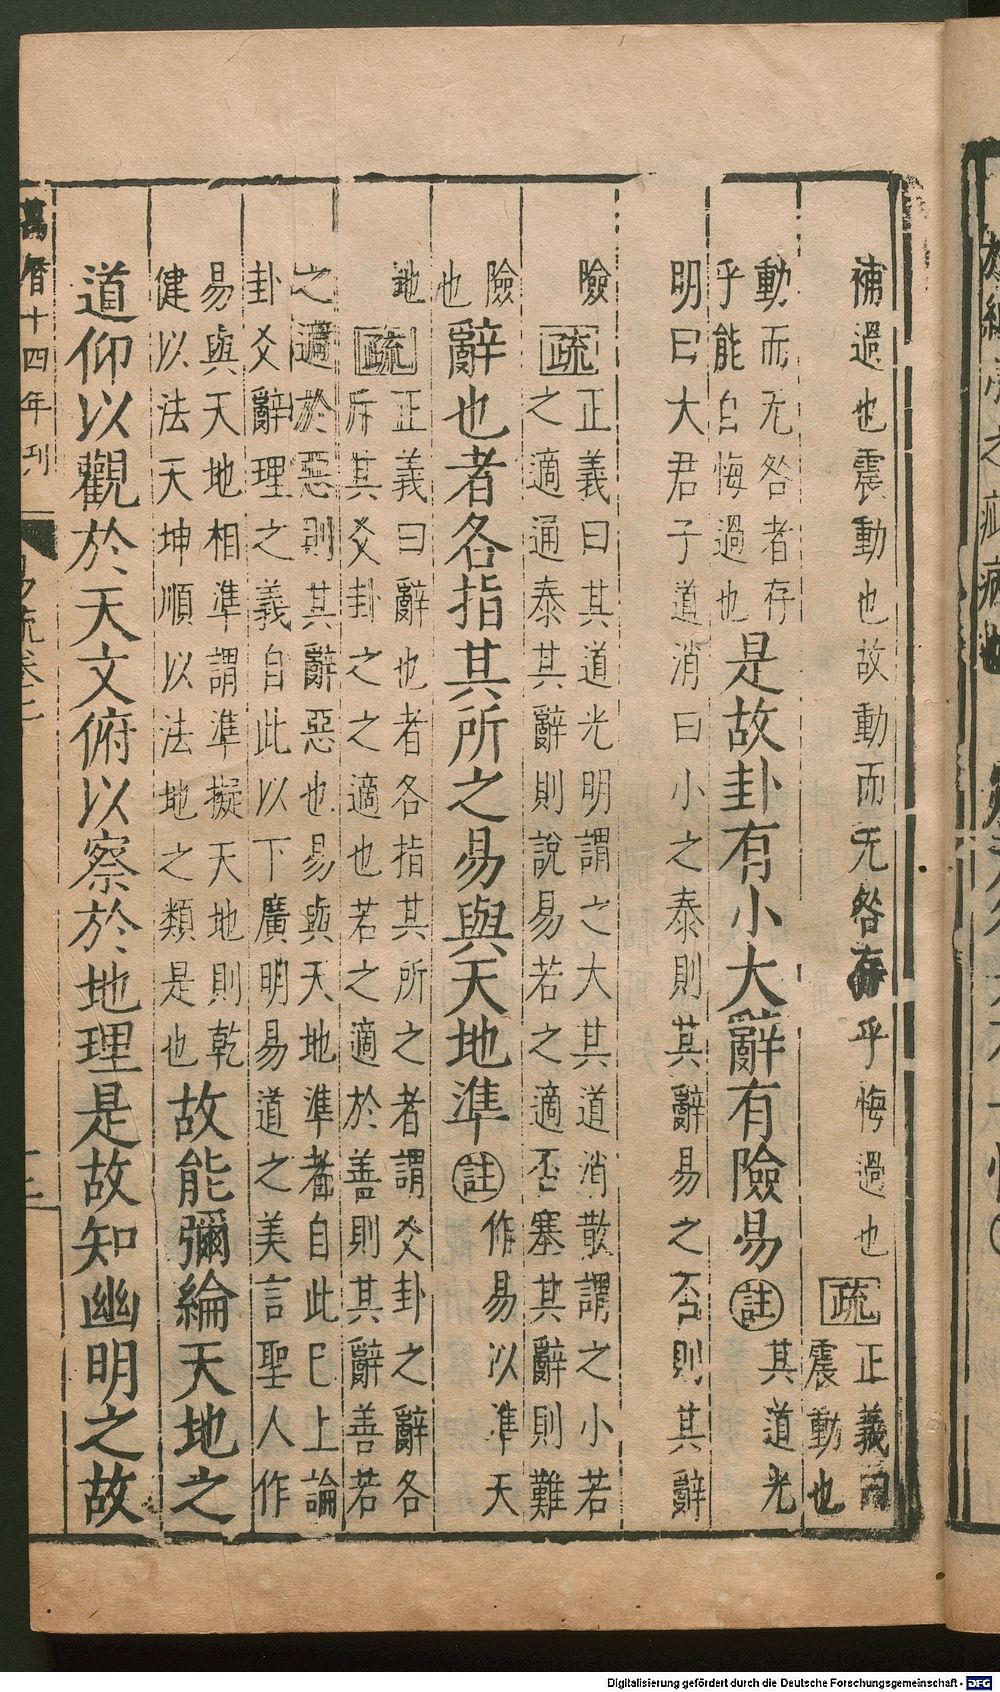 補過也震動也故動而无咎存乎悔過也疏正義曰
震動也
動而无咎者存
乎能自悔過也
是故卦有小大辭有險易註其道光
明曰大君子道消曰小之泰則其辭易之否則其辭
險疏正義曰其道光明謂之大其道消散謂之小若
之適通泰其辭則說易若之適否塞其辭則難
險
也
辭也者各指其所之易與天地準註作易以準天
地疏正義曰辭也者各指其所之者謂爻卦之辭各
斥其爻卦之之適也若之適於善則其辭善若
之適於惡則其辭惡也易與天地準者自此已上論
卦爻辭理之義自此以下廣明易道之美言聖人作
易與天地相準謂準擬天地則乾
健以法天坤順以法地之類是也
故能彌綸天地之
道仰以觀於天文俯以察於地理是故知幽明之故
萬曆十四年刊
Digitalisierung gefördert durch die Deutsche Forschungsgemeinschaft - DFG